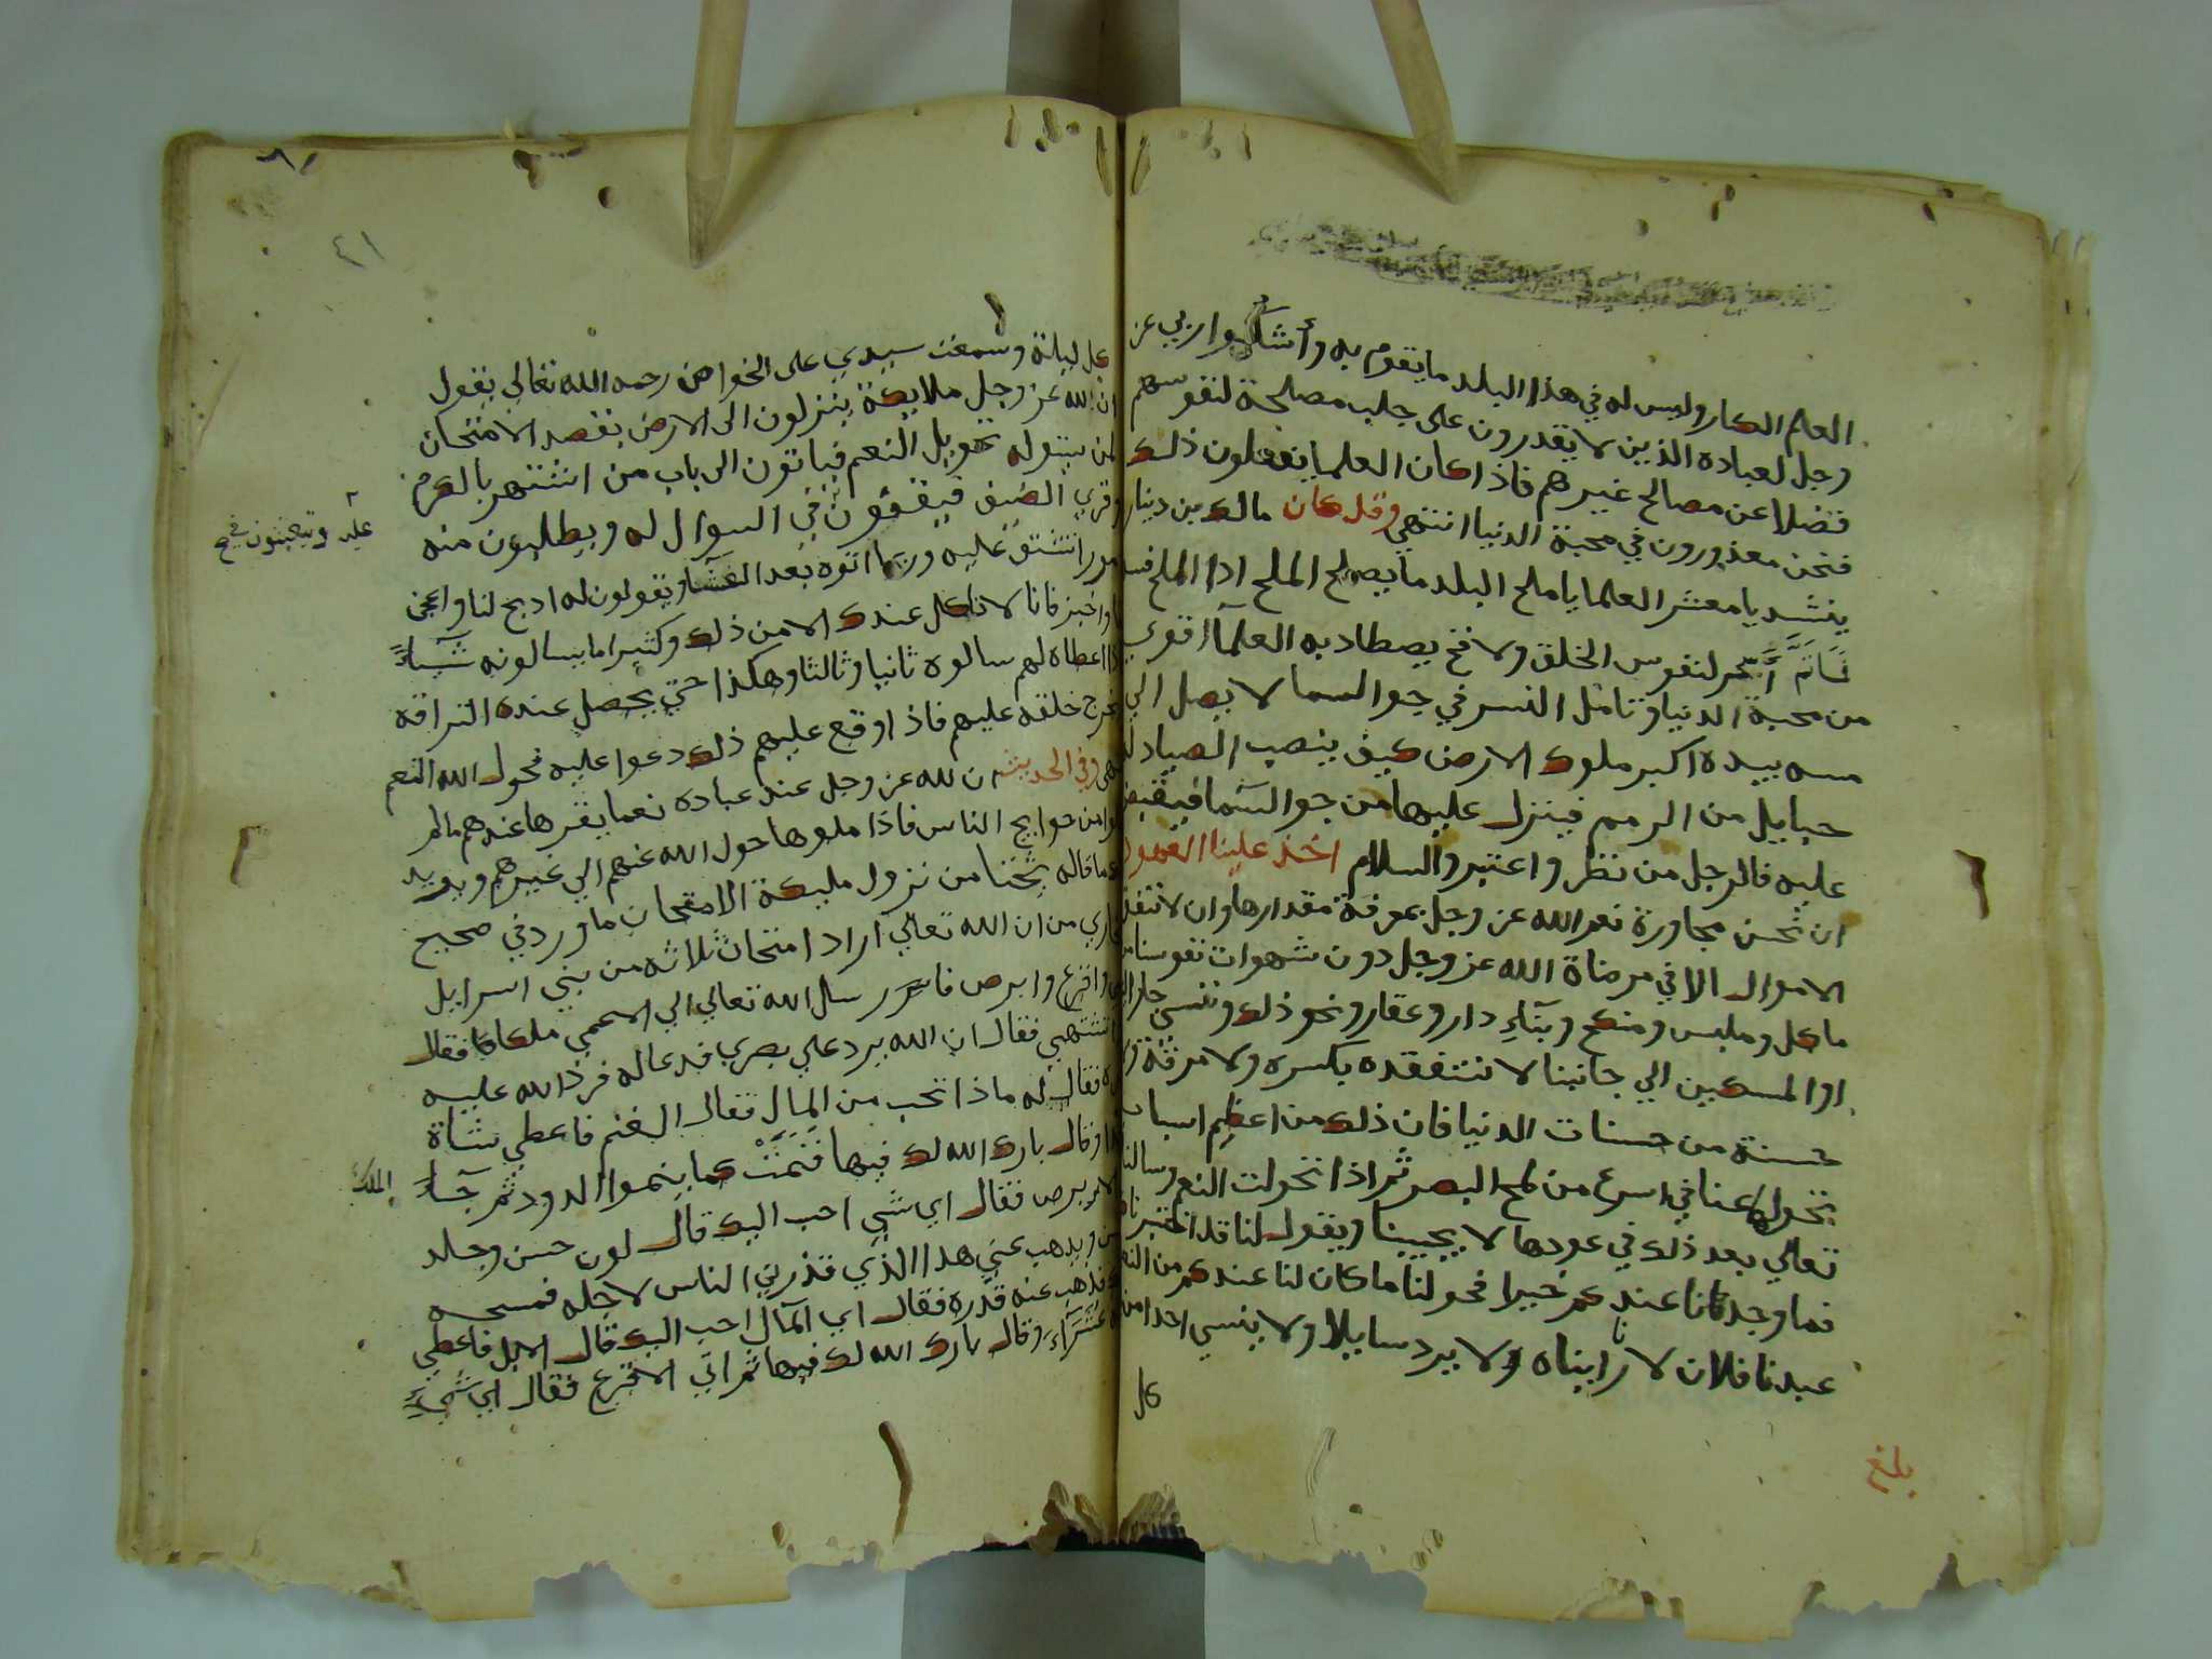 العلم الكار وليس له في هذا البلد ما يقوم به وأشكوا ربي عز
وجل لعباده الذين لا يقدرون على جلب مصلحة لنفوسهم
فضلا عن مصالح غيرهم فاذا كان العلما يفعلون ذلك
فنحن معذورون في محبة الدنيا انتهي وقد كان مالك بن دينار
ينشد يا معشر العلما يا ملح البلد ما يصلح الملح اذا الملح فسد
لنفوس الخلق ولا فخ يصطاد به العلمآ اقوي
من محبة الدنيا وتامل النسر في جو السما لا يصل الي
مسه بيده اكبر ملوك الارض كيف ينصب الصياد له
حبايل من الرمم فينزل عليها من جو السما فيقبض
عليه فالرجل من نظر واعتبر والسلام اخذ علينا العهود
ان نحسن مجاورة نعم الله عز وجل بمعرفة مقدارها وان لا ننفذ
الاموال الا في مرضاة الله عز وجل دون شهوات نفوسنا من
ماكل وملبس ومنكح وبنآء دار وعقار ونحو ذلك وننسي جارا
او المسكين الي جانبنا لا نتفقده بكسره ولا مرقة
حسنة من حسنات الدنيا فان ذلك من اعظم اسباب
تحولها عنا في اسرع من لمح البصر ثم اذا تحولت النعم وسالنا
تعالي بعد ذلك في عودها لا يجيبنا ويقول لنا قد اختبرناكم
فما وجدنا عندكم خيرا فحولنا ما كان لنا عندكم من النعم
عبدنا فلان لانا رايناه لا يرد سايلا ولا ينسي احدا من
كل
بلغ
٤١
كل ليلة وسمعت سيدي على الخواص رحمه الله تعالي يقول
ان لله عز وجل ملايكة ينزلون الى الارض بقصد الامتحان
لمن يتوله تحويل النعم فياتون الى باب من اشتهر بالكرم
وقري الضيف فيقفون في السوال له ويطلبون منه
تشق عليه وربما اتوه بعد العشا ويقولون له ادبح لنا واعجن
واخبز فانا لا ناكل عندك الا من ذلك وكثيرا ما يسالونه شيا
اذا اعطاه لهم سالوه ثانيا وثالثا وهكذا حتي يحصل عنده
خلقه عليهم فاذا وقع عليهم ذلك دعوا عليه فحول الله النعم
وفي الحديث ان لله عز وجل عند عباده نعما يقرها عندهم مالم
من حوايج الناس فاذا ملوها حول الله عنهم الي غيرهم ويويد
ما قاله شيخنا من نزول مليكة الامتحان ما ورد في صحيح
البخاري من ان الله تعالي اراد امتحان ثلاثه من بني اسرايل
واقرع وابرص فارسل الله تعالي الي الاعمي ملكا فقال
تشتهي فقال ان الله يرد علي بصري فدعا له فرد الله عليه
فقال له ماذا تحب من المال فقال الغنم فاعطي شاة
وقال بارك الله لك فيها فنمت كما ينموا الدود ثم جآء
الابرص فقال اي شي احب اليك قال لون حسن وجلد
حسن ويذهب عني هذا الذي قذرني الناس لاجله فمسحه
فذهب عنه قذره فقال اي المآل احب اليك قال الابل فاعطي
عشرآء وقال بارك الله لك فيها ثم اتي الاقرع فقال اي شيء
الملك